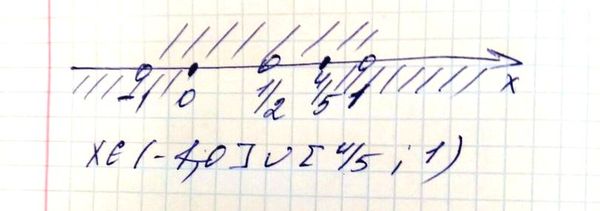 -1 0 1/2 4/5 1 x
x∈(-1;0]∪[4/5;1)